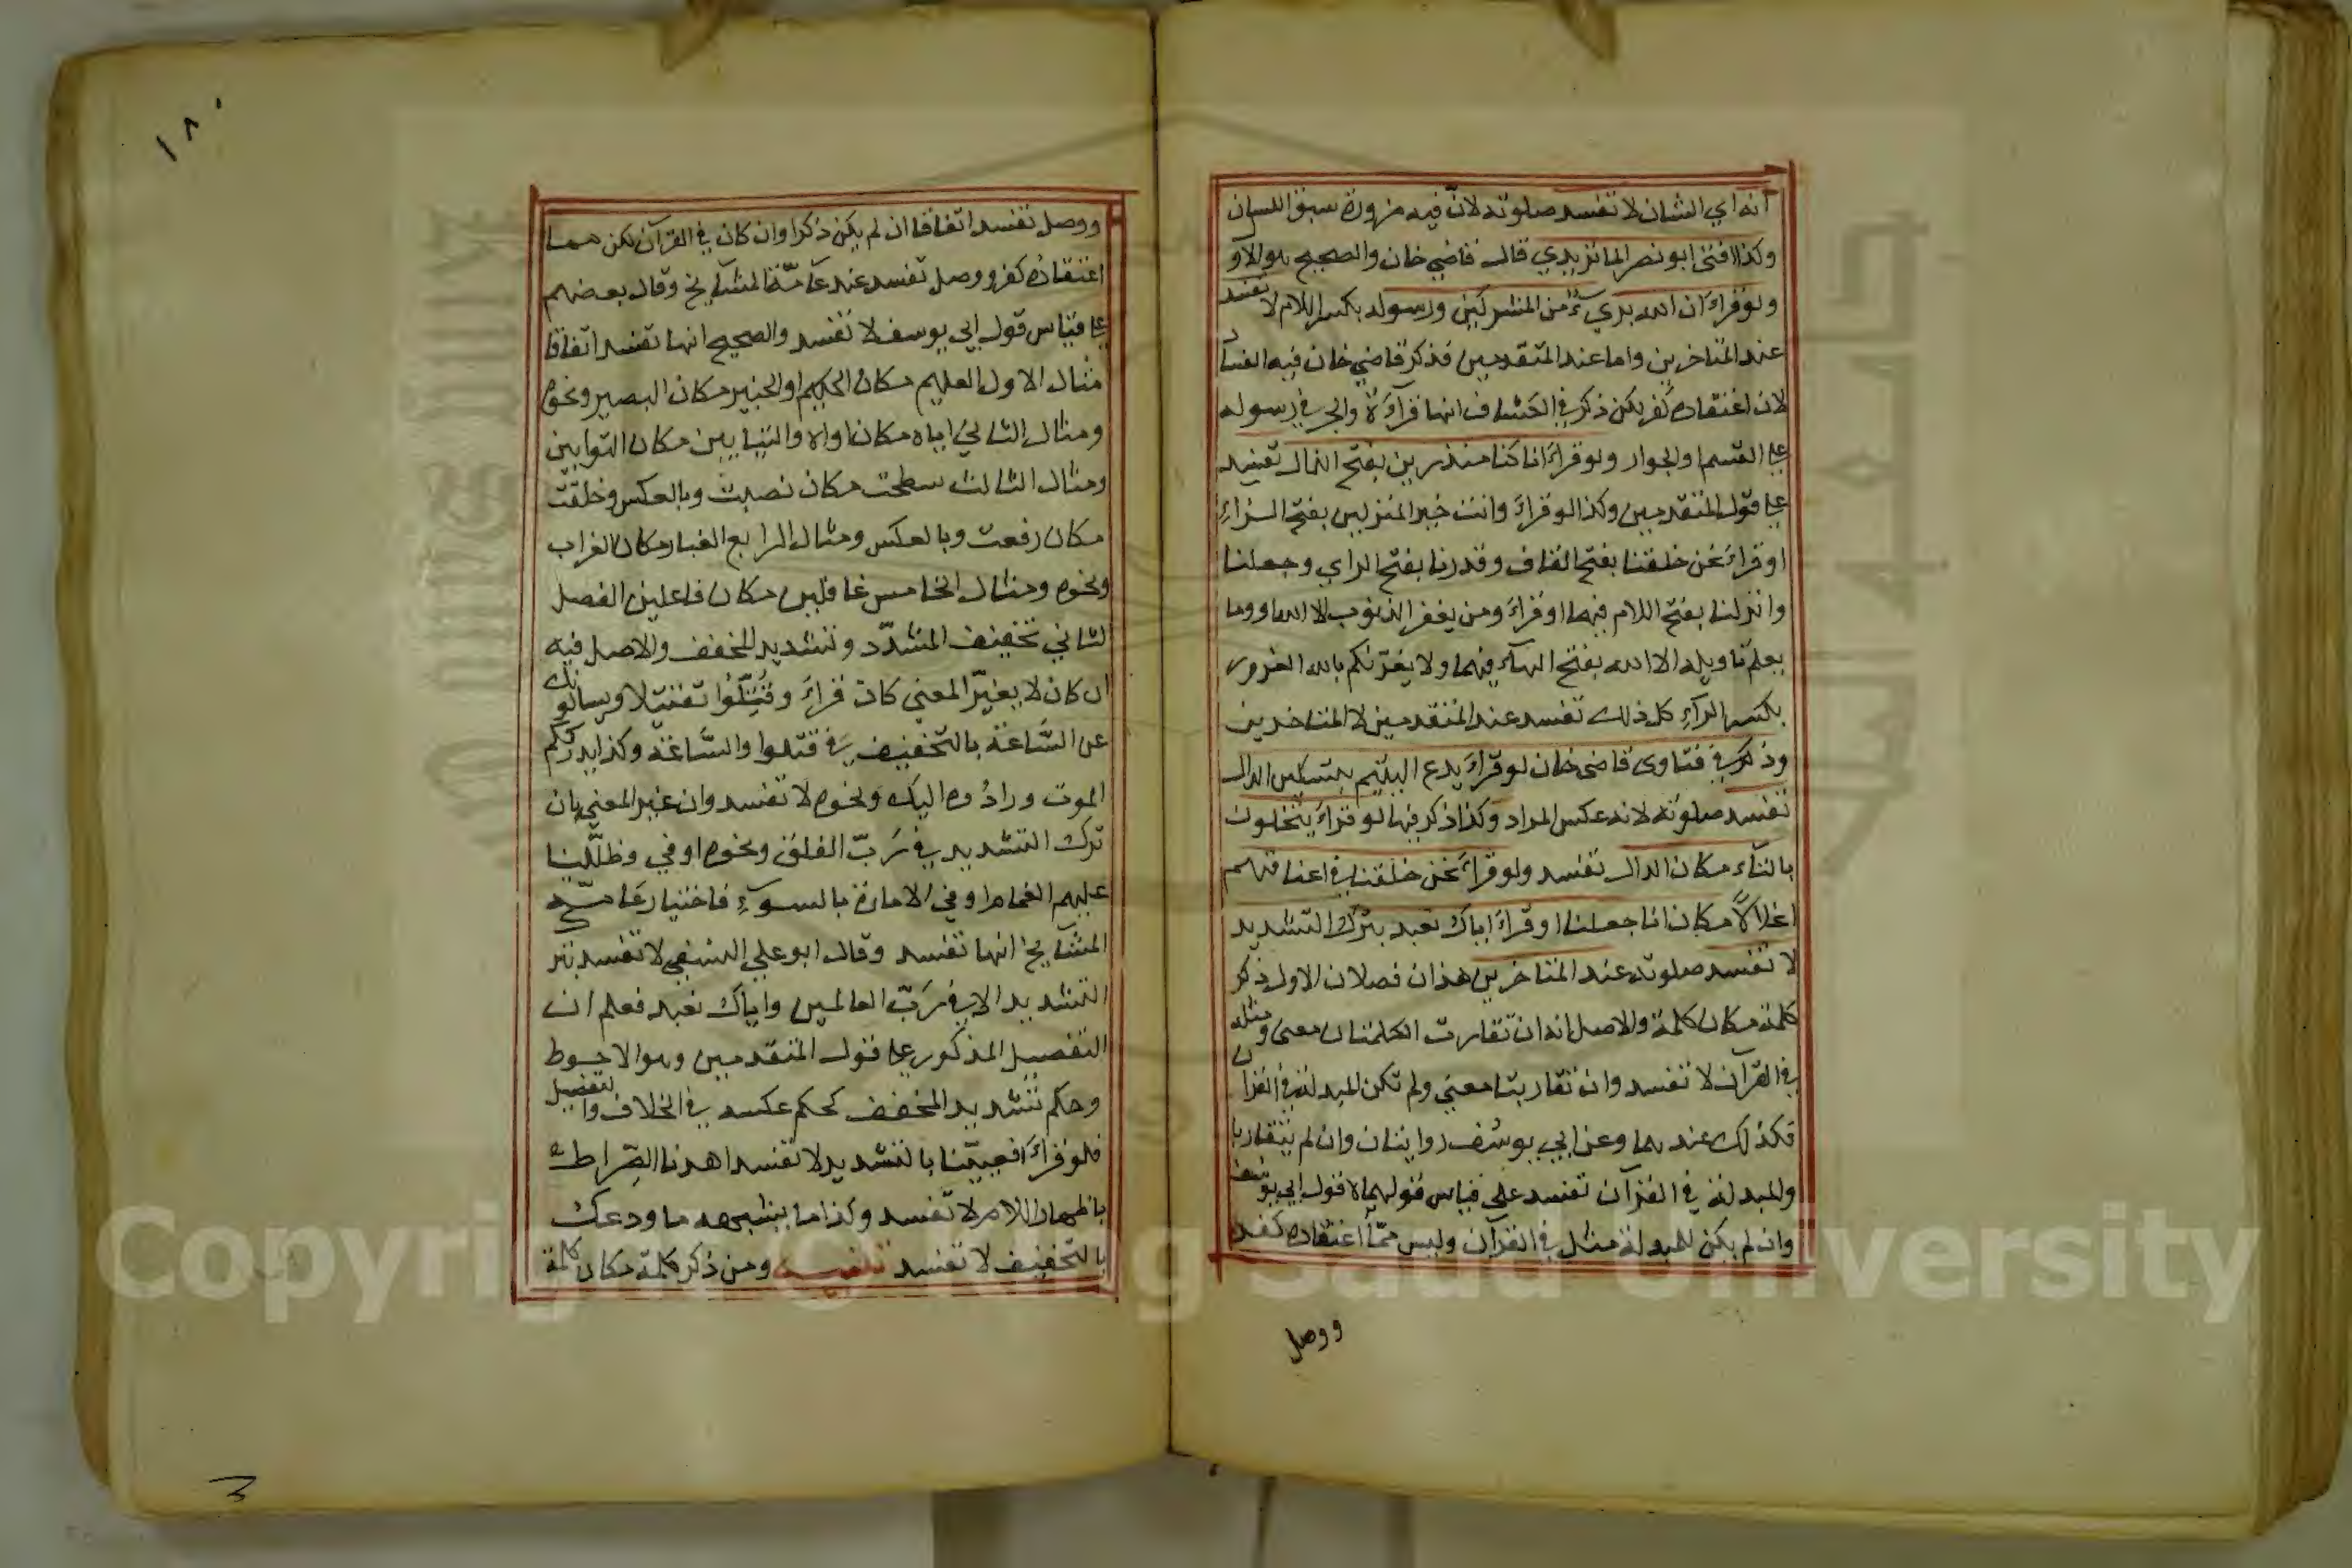 انه اي الشان لا تفسد صلوته لانّ فيه ضرورة سبق اللسان
وكذا افتى ابو نصر الماتريدي قال قاضي خان والصحيح هو الاو
ولو قراء ان الله بريءٌ من المشركين ورسوله بكسر اللام لا تفسد
عند المتاخرين واما عند المتقدمين فذكر قاضي خان فيه الفسا
لان اعتقاده كفر لكن ذكر في الكشاف انها قراءة والجر في رسوله
على القسم والجوار ولو قراء انا كنا منذرين بفتح الذال تفسد
على قول المتقدمين وكذا لو قراء وانت خير المنزلين بفتح الزاء
او قراء نحن خلقنا بفتح القاف وقدرنا بفتح الراي وجعلنا
وانزلنا بفتح اللام فيهما او قراء ومن يغفر الذنوب الا الله او وما
يعلم تاويله الا الله بفتح الهاء فيهما ولا يغرّنكم بالله الغرور
بكسر الراء كل ذلك تفسد عند المتقدمين لا المتاخرين
وذكر في فتاوى قاضي خان لو قراء يدع اليتيم بتسكين الدال
تفسد صلوته لانه عكس المراد وكذا ذكر فيها لو قراء يتخلون
بالتاء مكان الدال تفسد ولو قراء نحن خلقنا في اعناقهم
اغلالاً مكان انا جعلنا او قراء اياك نعبد بترك التشديد
لا تفسد صلوته عند المتاخرين هذان فصلان الاول ذكر
كلمة مكان كلمة والاصل انه ان تقاربت الكلمتان معنى ومثله
في القرآن لا تفسد وان تقاربتا معنى ولم تكن المبدلة في القرآن
فكذلك عندهما وعن ابي يوسُف روايتان وان لم يتقاربا
والمبدلة في القرآن تفسد على قياس قولهما لا قول ابي يوسف
وان لم يكن للمبدلة مثل في القرآن وليس ممّا اعتقاده كفر
ووصل
١٨٠
ووصل تفسد اتفاقا ان لم يكن ذكرا وان كان في القرآن لكن مما
اعتقادُه كفر ووصل تفسد عند عامّة المشايخ وقال بعضهم
على قياس قول ابي يوسف لا تفسد والصحيح انها تفسد اتفاقا
مثال الاول العليم مكان الحكيم او الخبير مكان البصير ونحوه
ومثال الثاني اياه مكان اواه والتيابين مكان التوابين
ومثال الثالث سطحت مكان نصبت وبالعكس وخلقت
مكان رفعت وبالعكس ومثال الرابع الغبار مكان الغراب
ونحوه ومثال الخامس غافلين مكان فاعلين الفصل
الثاني تخفيف المشدّد وتشديد المخفف والاصل فيه
ان كان لا يغيّر المعنى كان قراء وقُتّلُوا تقتيلا ويسالونك
عن السَّاعة بالتخفيف في قتلوا والسَّاعة وكذا يدرككم
الموت ورادُوه اليك ونحوه لا تفسد وان غير المعنى بان
ترك التشديد في رَبّ الفلق ونحوه او في وظلّلنا
عليهم الغمام او في الامارة بالسوء فاختيار عامّة
المشايخ انها تفسد وقال ابو علي النسفي لا تفسد بتر
التشديد الا في رَبّ العالمين واياك نعبد فعلم ان
التفصيل المذكور على قول المتقدمين وهو الاحوط
وحكم تشديد المخفف كحكم عكسه في الخلاف والتفصيل
فلو قراء افعيّينا بالتشديد لا تفسد اهدنا الصّراط
باظهار اللام لا تفسد وكذا ما يشبهه ما ودعك
بالتخفيف لا تفسد ومن ذكر كلمة مكان كلمة
Copyright © King Saud University